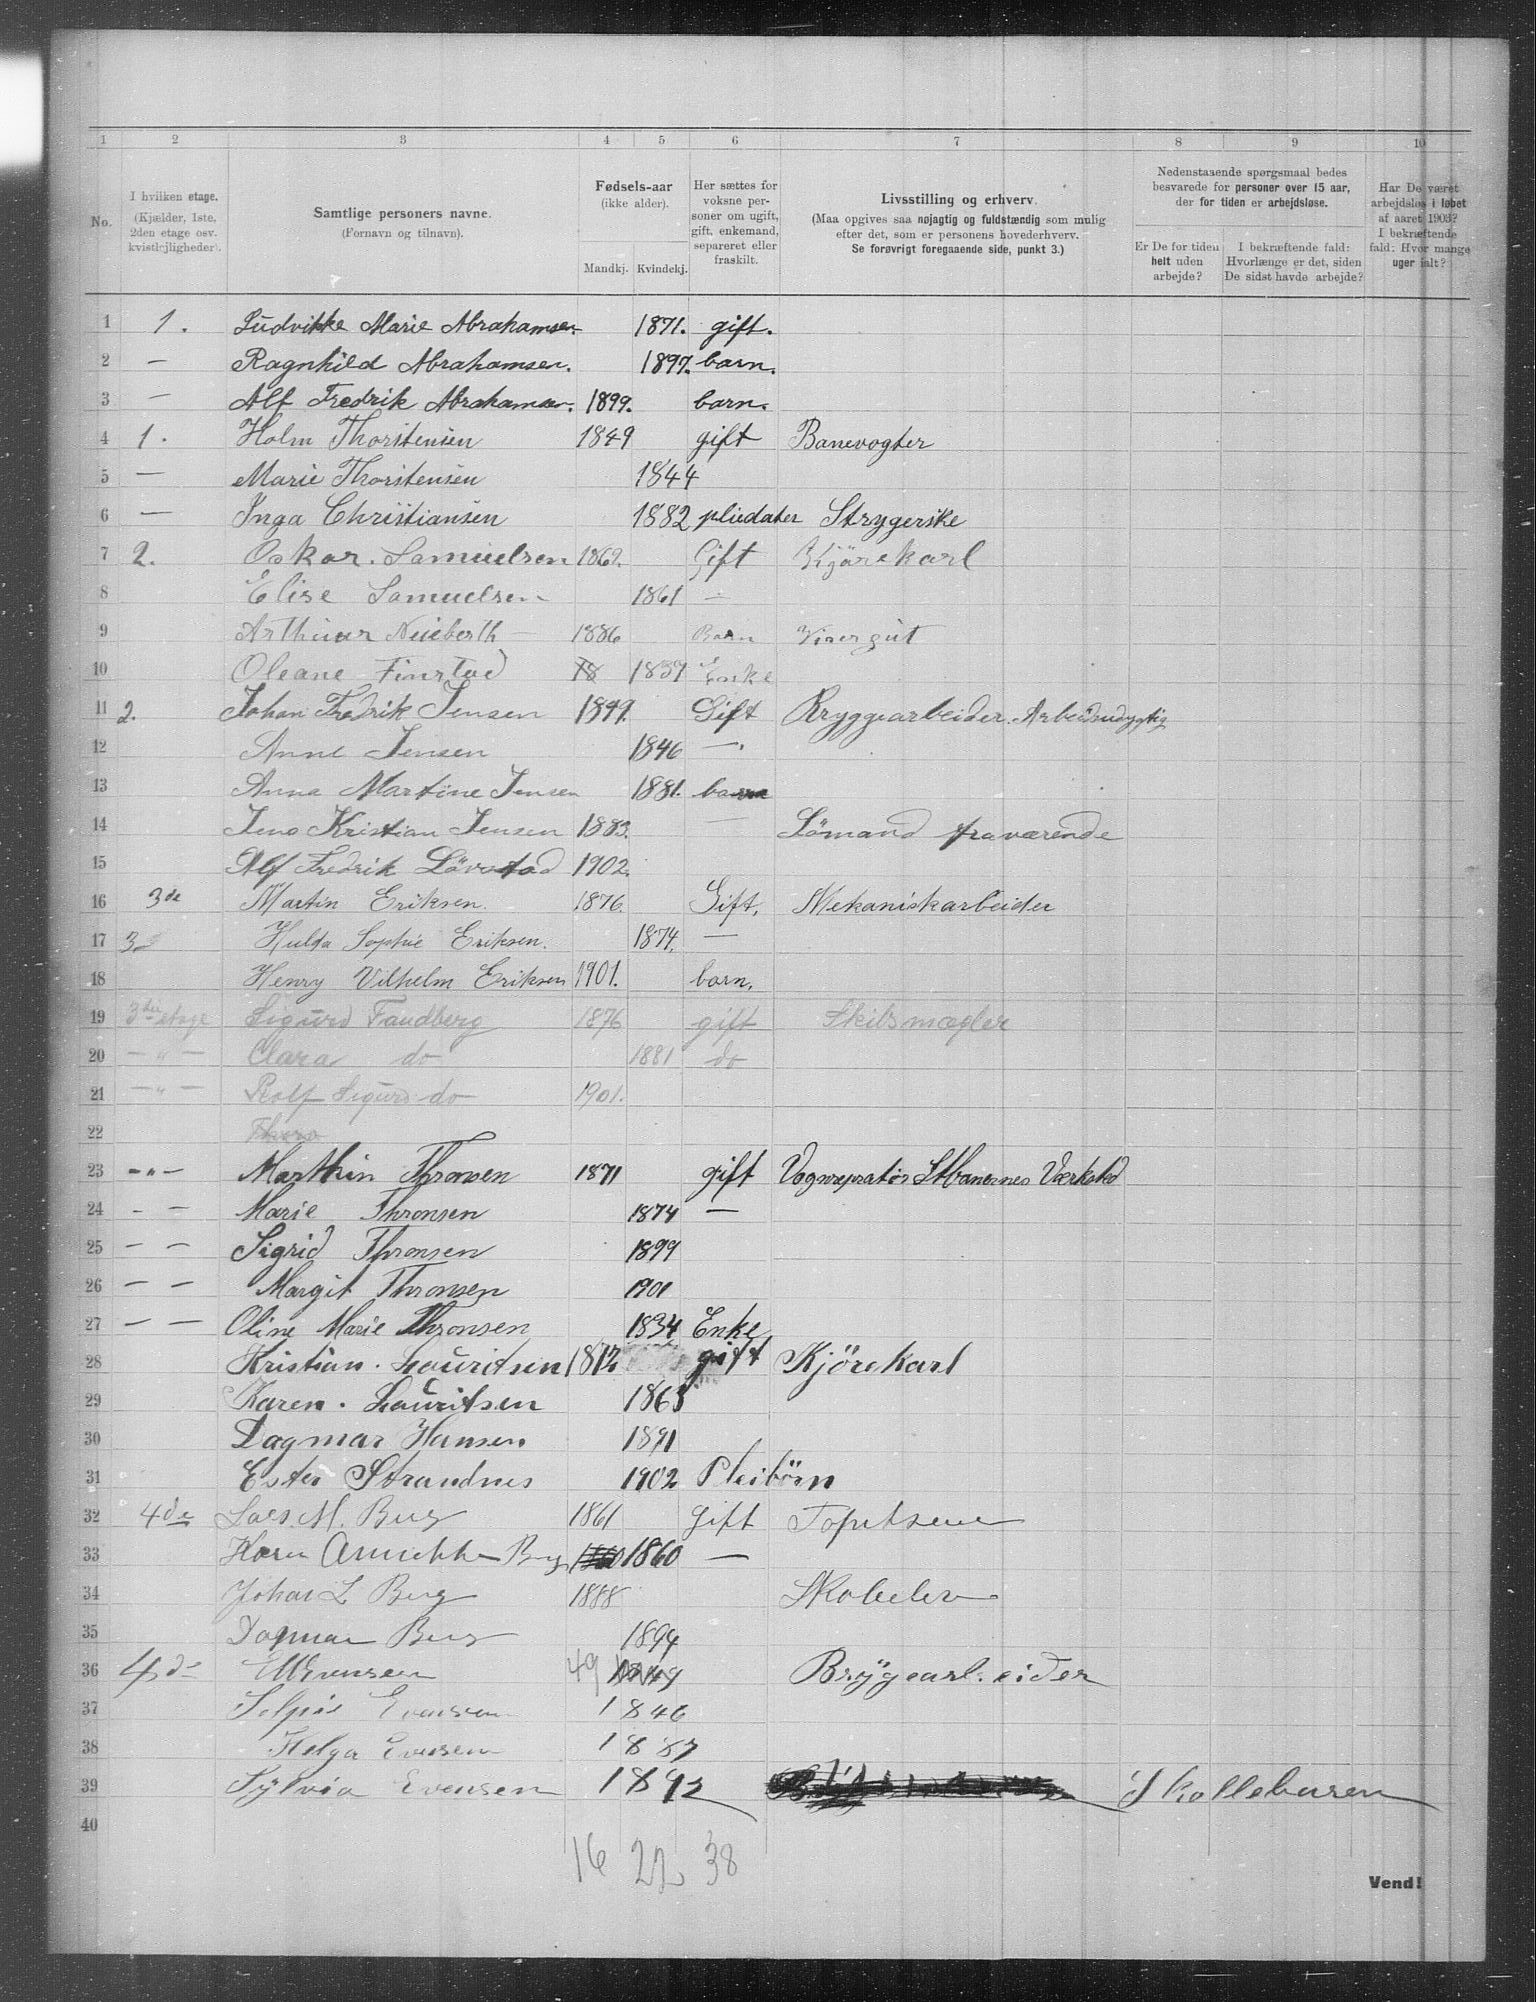 1 2 3 4 5 6 7 8 9 10
No.
I hvilken etage. (Kjælder, 1ste, 2den etage osv. kvistlejligheder).
Samtlige personers navne. (Fornavn og tilnavn).
Fødsels-aar (ikke alder).
Mandkj. Kvindekj.
Her sættes for voksne personer om ugift, gift, enkemand, separeret eller fraskilt.
Livsstilling og erhverv. (Maa opgives saa nøjagtig og fuldstændig som mulig efter det, som er personens hovederhverv. Se forøvrigt foregaaende side, punkt 3.)
Nedenstaaende spørgsmaal bedes besvarede for personer over 15 aar, der for tiden er arbejdsløse.
Er De for tiden helt uden arbejde?
I bekræftende fald: Hvorlænge er det, siden De sidst havde arbejde?
Har De været arbejdsløs i løbet af aaret 1903? I bekræftende fald: Hvor mange uger ialt?
1 1. Ludvikke Marie Abrahamsen 1871. gift.
2 — Ragnhild Abrahamsen. 1897. barn.
3 — Alf Fredrik Abrahamsen. 1899. barn.
4 1. Holm Thorstensen 1849 gift Banevogter
5 — Marie Thorstensen 1844
6 — Inga Christiansen 1882 pliedater Strygerske
7 2. Oskar. Samuelsen 1862. Gift Kjörekarl
8 Elise Samuelsen 1861 —
9 Arthur Neuberth 1886 Barn Visergut
10 Oleane Finstad 18 1837 Enke
11 2. Johan Fredrik Jensen 1849. Gift Bryggearbeider. Arbeidsudygtig
12 Anne Jensen 1846 —"
13 Anna Martine Jensen 1881. barn
14 Jens Kristian Jensen 1883. — Sömand fraværende
15 Alf Fredrik Lövstad 1902.
16 3de Martin Eriksen. 1876. Gift. Mekaniskarbeider
17 3 Hulda Sophie Eriksen. 1874. —
18 Henry Vilhelm Eriksen 1901. barn.
19 3die etage Sigurd Sandberg 1876 gift Skibsmægler
20 — " — Clara do 1881 do
21 — " — Rolf Sigurd do 1901.
22
23 — " — Marthin Thronsen 1871 gift Vognrepratør Stbanernes Værksted
24 — — Marie Thronsen 1874 —
25 — — Sigrid Thronsen 1899
26 — — Margit Thronsen 1901
27 — — Oline Marie Thronsen 1834 Enke
28 Kristian. Lauritsen 1872 gift Kjörekarl
29 Karen. Lauritsen 1863
30 Dagmar Hansen 1891
31 Ester Strandnes 1902 Pleibörn
32 4de Lars. M. Berg 1861 gift
33 Karen Annekke Berg 1860 1860 —
34 Johan L Berg 1888 Skoelev
35 Dagmar Berg 1894
36 4de Evensen 49 1849 Brÿgearbeider
37 Evensen 1846
38 Helga Evensen 1887
39 Sÿlvia Evensen 1892 Skollebaren
40
16 22 38
Vend!